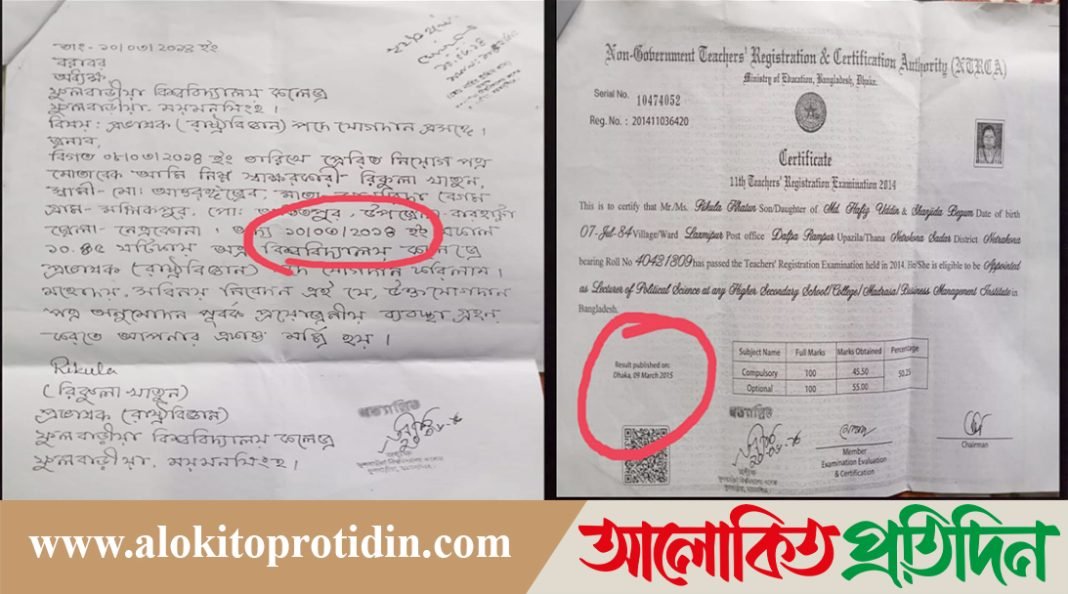 তাং- ১০/০৩/২০১৪ ইং
বরাবর
অধ্যক্ষ
ফুলবাড়ীয়া বিশ্ববিদ্যালয় কলেজ
ফুলবাড়ীয়া, ময়মনসিংহ।
বিষয়: প্রভাষক (রাষ্ট্রবিজ্ঞান) পদে যোগদান প্রসঙ্গে।
জনাব,
বিগত ০৮/০৩/২০১৪ ইং তারিখে প্রেরিত নিয়োগ পত্র
মোতাবেক আমি নিম্ন স্বাক্ষরকারী- রিকুলা খাতুন,
স্বামী- মো:
গ্রাম- মল্লিকপুর, পো: উপজেলা- বারহাট্টা
জেলা- নেত্রকোনা। অদ্য ১০/০৩/২০১৪ ইং সকাল
১০.৪৫ ঘটিকায় অত্র বিশ্ববিদ্যালয় কলেজে
প্রভাষক (রাষ্ট্রবিজ্ঞান) পদে যোগদান করিলাম।
মহোদয়, সবিনয় নিবেদন এই যে, উক্ত যোগদান
পত্র অনুমোদন পূর্বক প্রয়োজনীয় ব্যবস্থা গ্রহন
করতে আপনার মর্জি হয়।
Rikula
(রিকুলা খাতুন)
প্রভাষক (রাষ্ট্রবিজ্ঞান)
ফুলবাড়ীয়া বিশ্ববিদ্যালয় কলেজ
ফুলবাড়ীয়া, ময়মনসিংহ।
সত্যায়িত
Non-Government Teachers' Registration & Certification Authority (NTRCA)
Ministry of Education, Bangladesh, Dhaka.
Serial No. 10474052
Reg. No. : 201411036420
Certificate
11th Teachers' Registration Examination 2014
This is to certify that Mr/Ms. Rikula Khatun Son/Daughter of Md. Hafiz Uddin & Shanjida Begum Date of birth
07-Jul-84 Village/Ward Laxmipur Post office Datpa Rampur Upazila/Thana Netrokona Sadar District Netrokona
bearing Roll No 40421809 has passed the Teachers' Registration Examination held in 2014. He/She is eligible to be Appointed
as Lecturer of Political Science at any Higher Secondary School/College/Madrasa/Business Management Institute in
Bangladesh.
Result published on:
Dhaka, 09 March 2015
Subject Name Full Marks Marks Obtained Percentage
Compulsory 100 45.50 50.25
Optional 100 55.00
সত্যায়িত
Member
Examination Evaluation
& Certification
Chairman
www.alokitoprotidin.com
আলোকিত প্রতিদিন